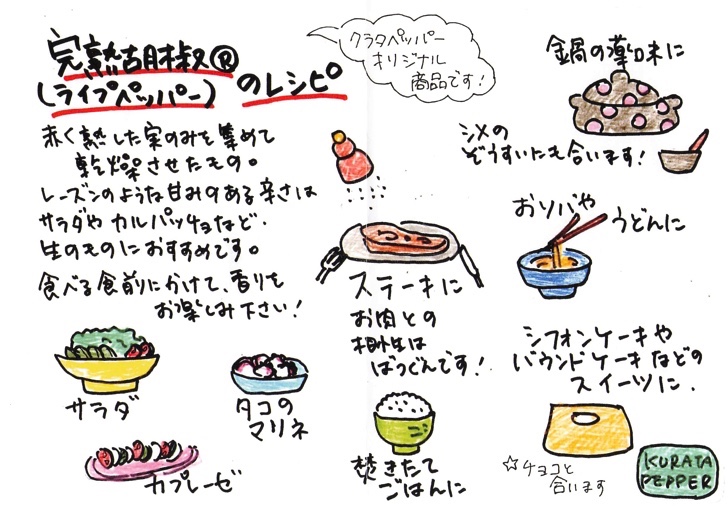 完熟胡椒®
(ライプペッパー)
のレシピ
クラタペッパー
オリジナル
商品です!
赤く熟した実のみを集めて
乾燥させたもの。
レーズンのような甘みのある辛さは
サラダや カルパッチョなど、
生のものにおすすめです。
食べる食前にかけて、香りを
お楽しみ下さい!
サラダ
タコの
マリネ
カプレーゼ
ステーキに
お肉との
相性は
ばつぐんです!
焚きたて
ごはんに
鍋の薬味に
シメの
ぞうすいにも合います!
おソバや
うどんに
シフォンケーキや
パウンドケーキなどの
スイーツに.
☆チョコと
合います
KURATA
PEPPER